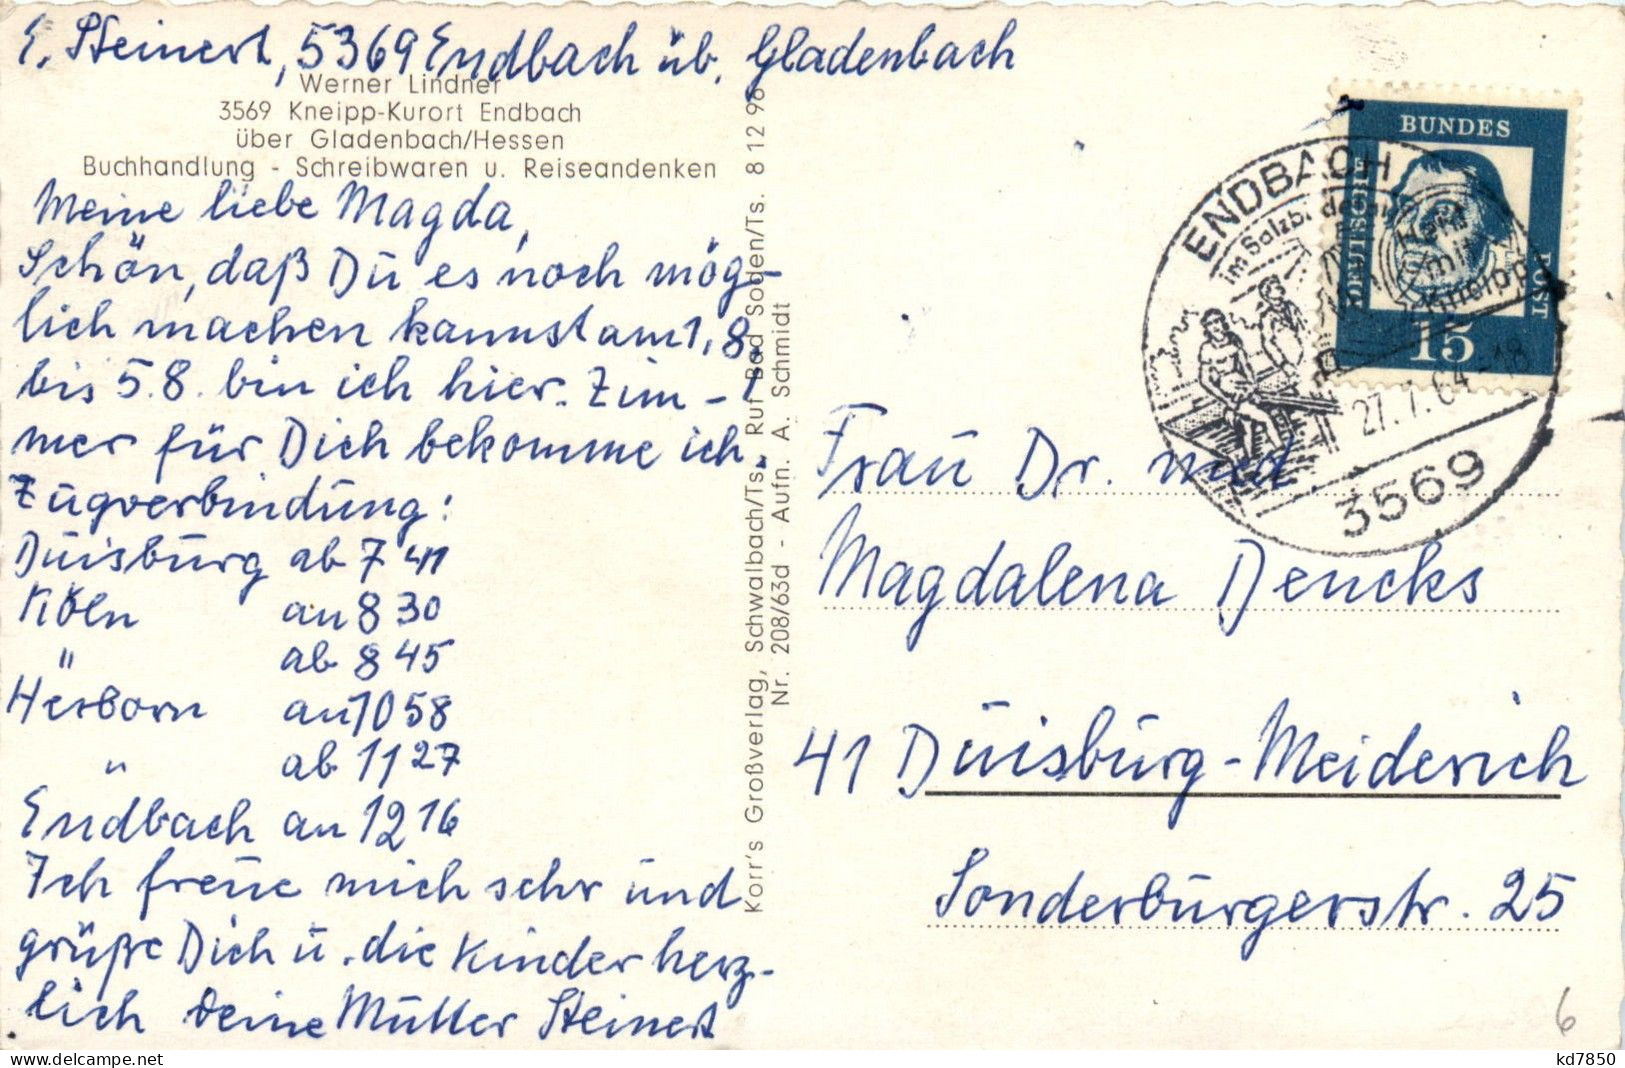 E. Steinert, 5369 Endbach üb. Gladenbach
Werner Lindner
3569 Kneipp-Kurort Endbach
über Gladenbach/Hessen
Buchhandlung - Schreibwaren u. Reiseandenken
Meine liebe Magda,
Schön, daß Du es noch mög-
lich machen kannst am 1.8.
bis 5.8. bin ich hier. Zim-
mer für Dich bekomme ich.
Zugverbindung:
Duisburg ab 7 41
Köln an 8 30
" ab 8 45
Herborn an 10 58
" ab 11 27
Endbach an 12 16
Ich freue mich sehr und
grüße Dich u. die Kinder herz-
lich Deine Mutter Steinert
Korr's Großverlag, Schwalbach/Ts. Ruf Bad Soden/Ts. 8 12 96
Nr. 208/63d - Aufn. A. Schmidt
BUNDES
POST
15
ENDBACH
im Salzbödetal
Heilt
mit
Kneipp
27.7.64-18
3569
Frau Dr. med
Magdalena Dencks
41 Duisburg-Meiderich
Sonderburgerstr. 25
6
kd7850